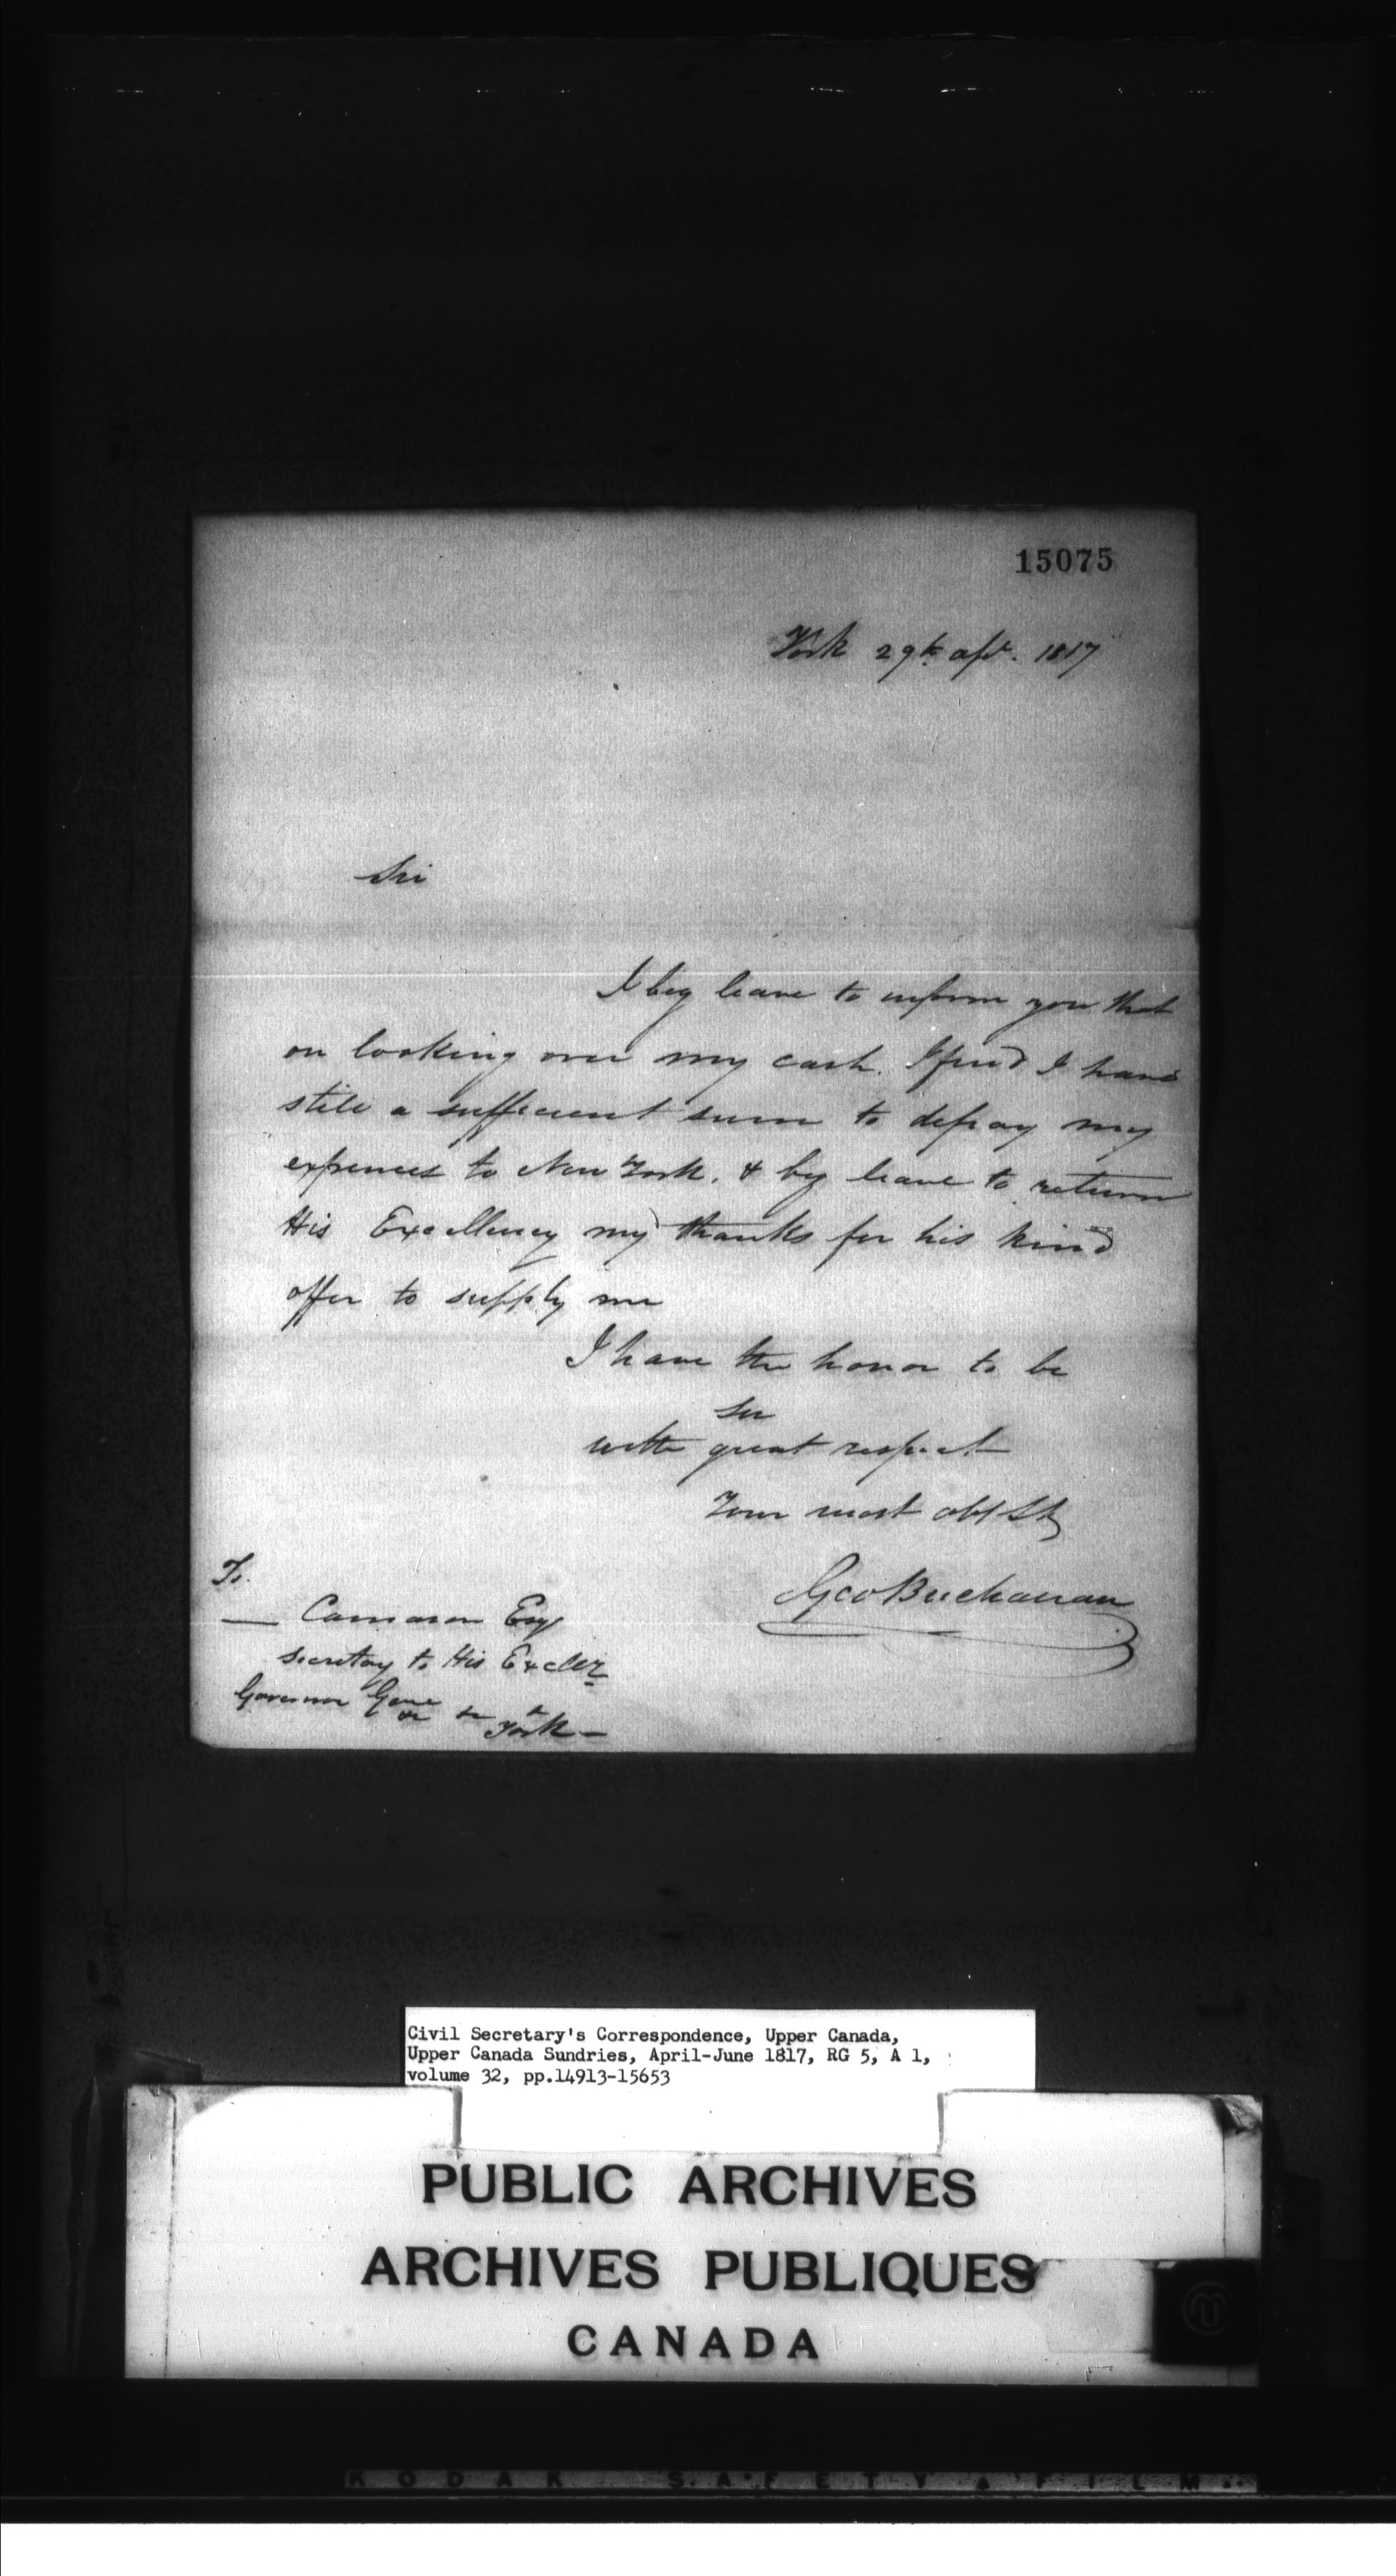 15075
York 29th apl. 1817
Sir
I beg leave to inform you that
on looking over my cash. I find I have
still a sufficient sum to defray my
expences to New York. & beg leave to return
His Excellency my thanks for his kind
offer to supply me
I have the honor to be
Sir
with great respect
Your most obt St
Geo Buchanan
To.
— Cameron Esqr
Secretary to His Excelly
Governor Gore
&c &c York —
Civil Secretary's Correspondence, Upper Canada,
Upper Canada Sundries, April-June 1817, RG 5, A 1,
volume 32, pp.14913-15653
PUBLIC ARCHIVES
ARCHIVES PUBLIQUES
CANADA
KODAK SAFETY FILM